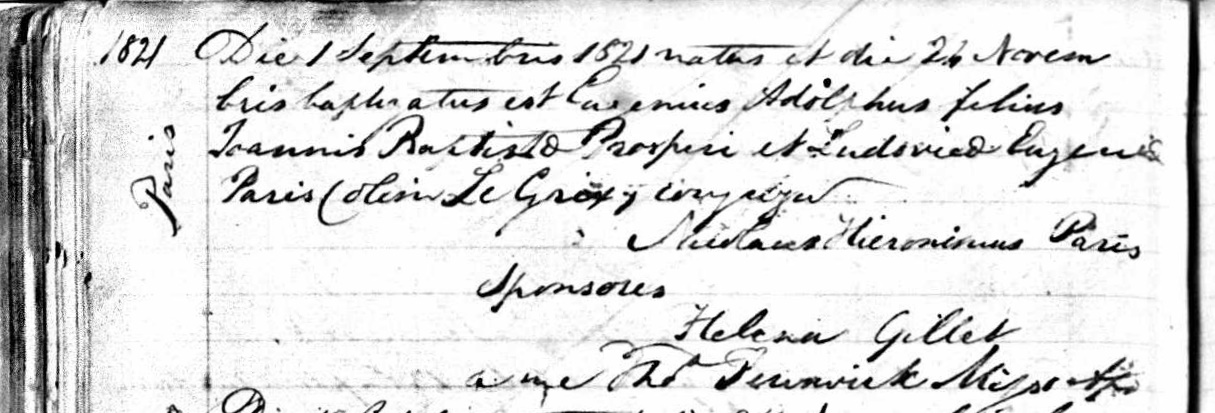 1821 Die 1 Septembris 1821 natus et die 24 Novem
bris baptizatus est Eugenius Adolphus filius
Paris
Joannis Baptistæ Prosperi et Ludovicæ Eugeniæ
Paris (olim Le Groix) conjugum
Nicolaus Hieronimus Paris
Sponsores
Helena Gillet
a me Tho^s Fenwick Miss^o Ap^o